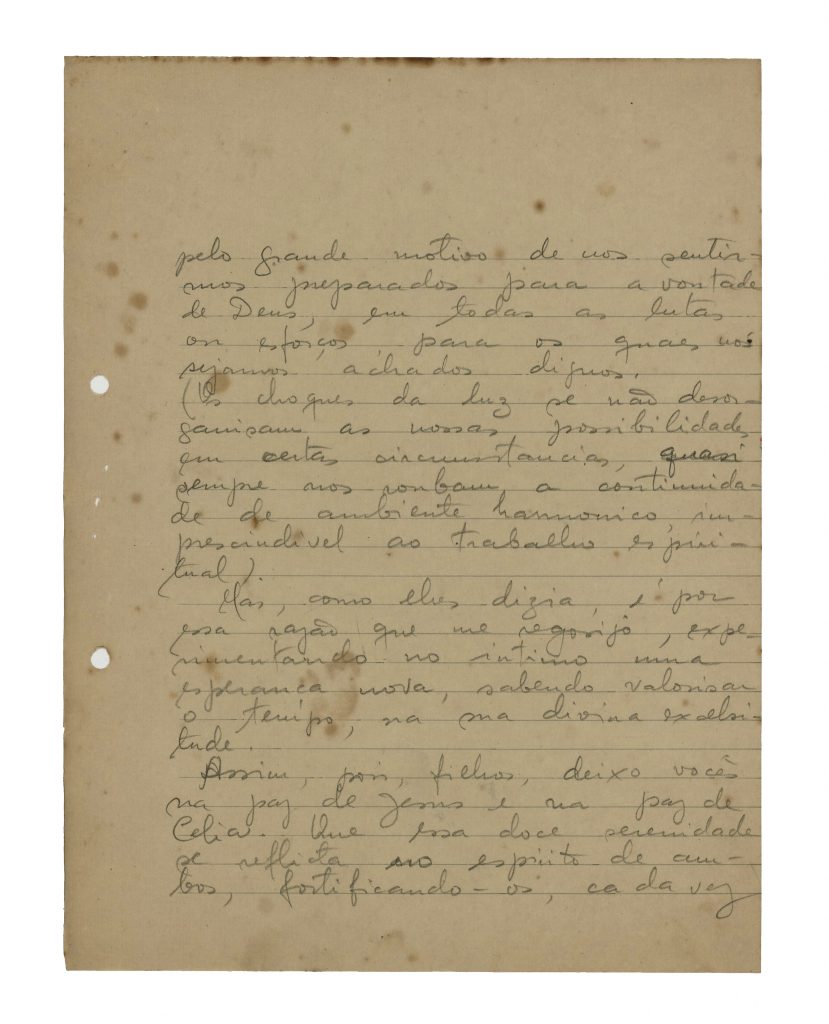 pelo grande motivo de nos sentir-
mos preparados para a vontade
de Deus, em todas as lutas
ou esforços, para os quaes nós
sejamos achados dignos.
(Os choques da luz se não desor-
ganisam as nossas possibilidades
em certas circumstancias, quasi
sempre nos roubam a continuida-
de de ambiente harmonico, im-
prescindivel ao trabalho espiri-
tual).
Mas, como lhes dizia, é por
essa razão que me regosijo, expe-
rimentando no intimo uma
esperança nova, sabendo valorisar
o tempo, na sua divina excelsi-
tude.
Assim, pois, filhos, deixo vocês
na paz de Jesus e na paz de
Celia. Que essa doce serenidade
se reflicta no espirito de am-
bos, fortificando-os, cada vez